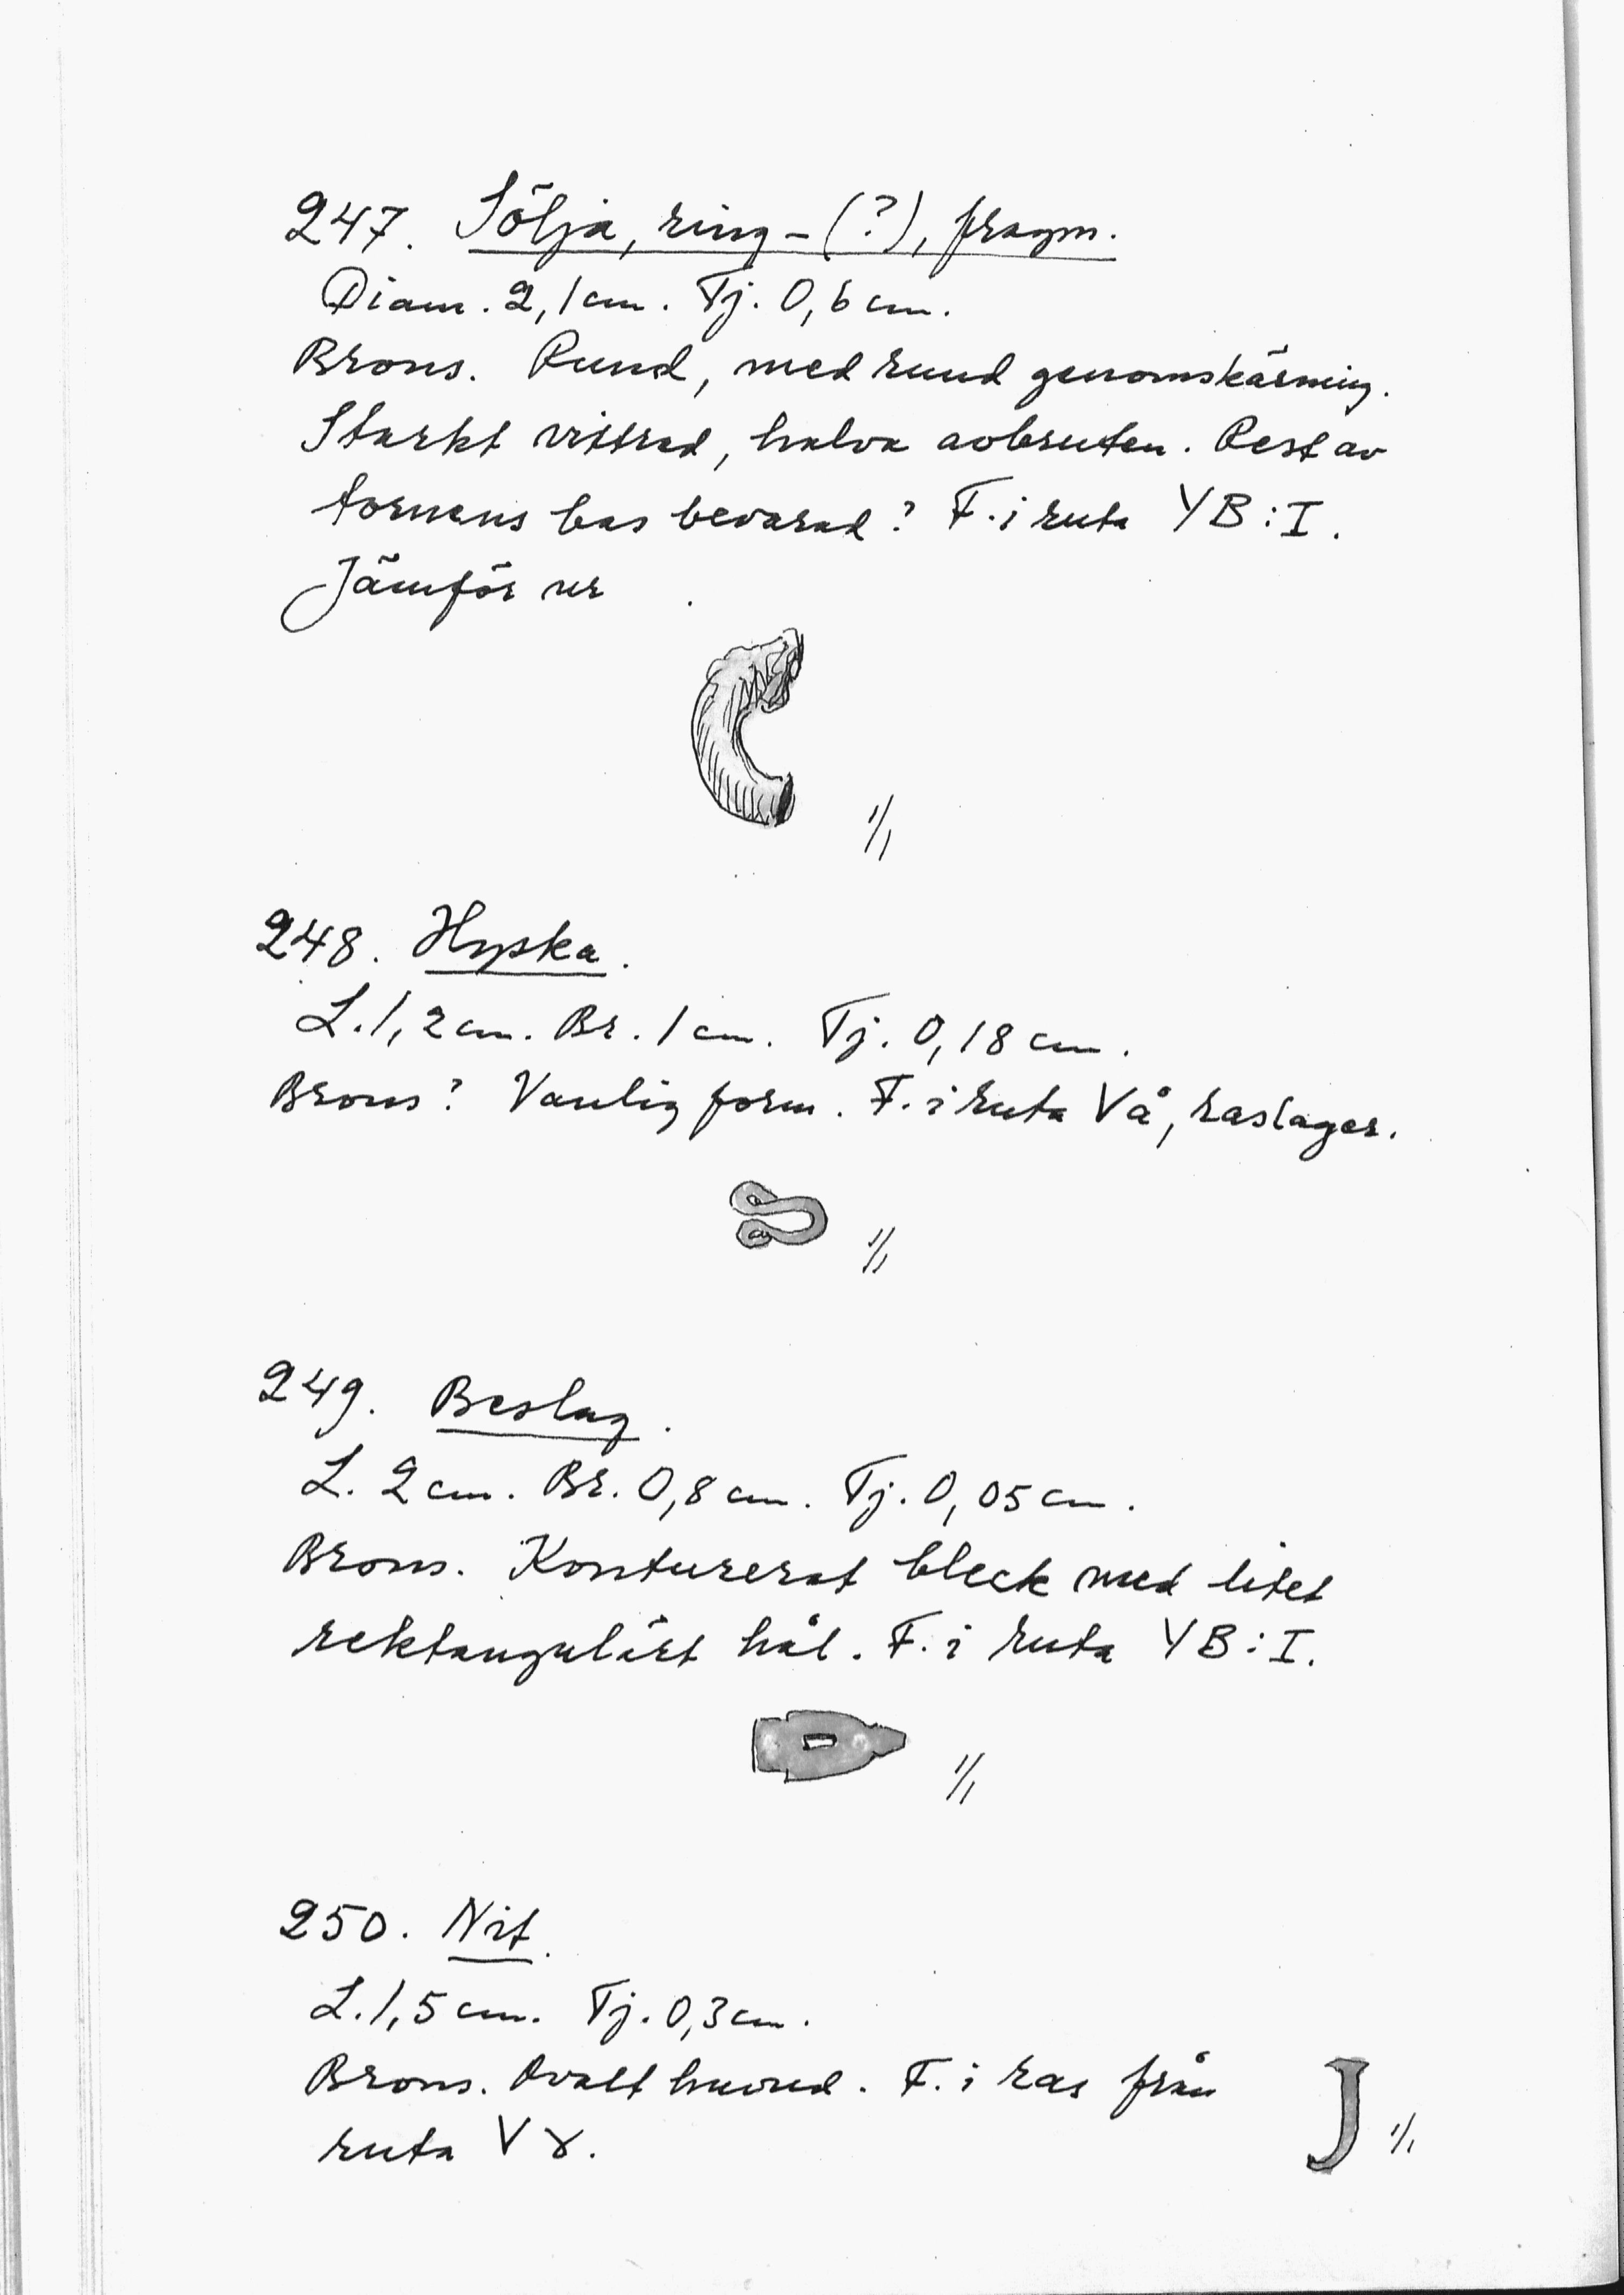 247. Sölja, ring-(?), fragm.
Diam. 2,1 cm. Tj. 0,6 cm.
Brons. Rund, med rund genomskärning.
Starkt vittrad, halva avbruten. Rest av
tornens bas bevarad? F. i ruta YB:I.
Jämför nr .
1/1
248. Hyska.
L. 1,2 cm. Br. 1 cm. Tj. 0,18 cm.
Brons? Vanlig form. F. i ruta Vå, raslager.
1/1
249. Beslag.
L. 2 cm. Br. 0,8 cm. Tj. 0,05 cm.
Brons. Konturerat bleck med litet
rektangulärt hål. F. i ruta YB:I.
1/1
250. Nit.
L. 1,5 cm. Tj. 0,3 cm.
Brons. Ovalt huvud. F. i ras från
ruta V 8.
1/1